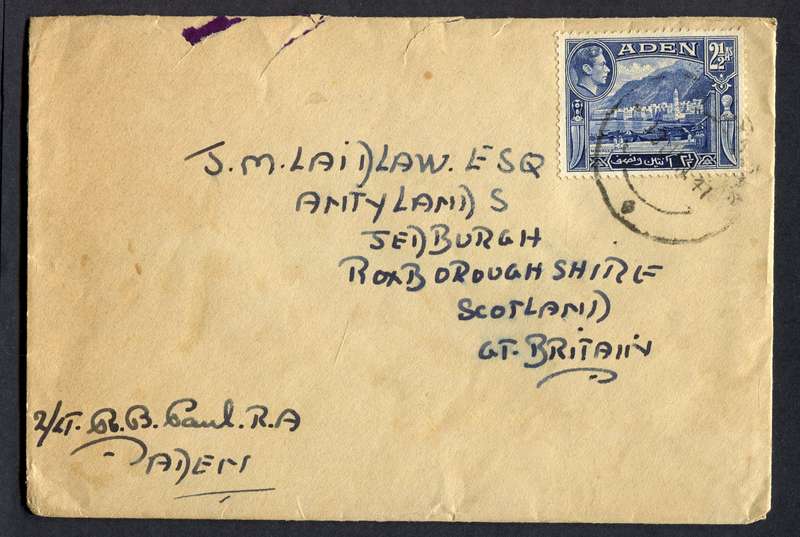 ADEN
2½ AS
J. M. LAIDLAW. ESQ
ANTYLANDS
JEDBURGH
ROXBOROUGHSHIRE
SCOTLAND
GT. BRITAIN
2/LT. R. B. Paul. R.A
ADEN